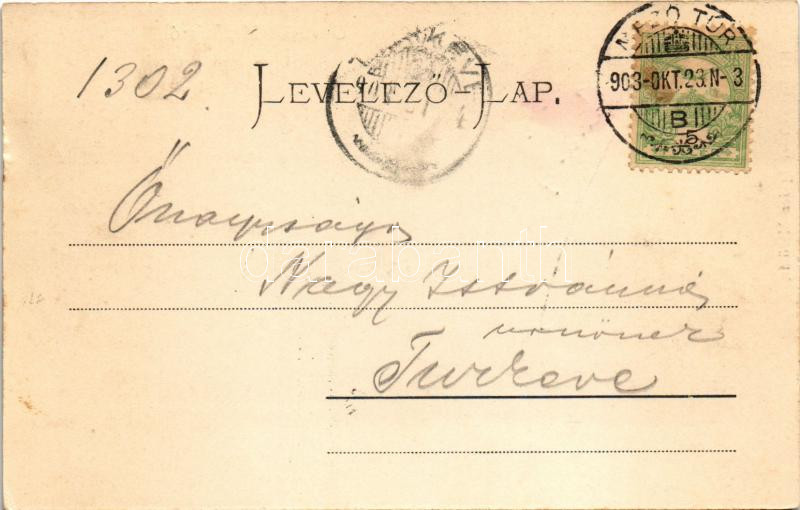 MEZŐ TÚR
903-OKT.23.N-3
B
5
KEVI
1302.
LEVELEZŐ-LAP.
Őnagysága
Nagy Istvánné
urnőnek
Turkeve
darabanth